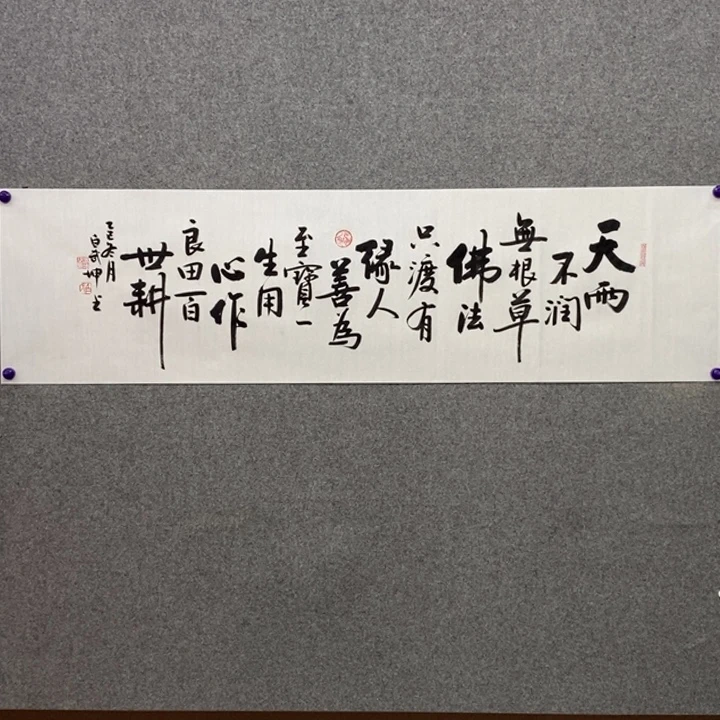 天雨
不润
無根草
佛法
只渡有
緣人
善為
至寶一
生用
心作
良田百
世耕
乙巳冬月
白武坤书